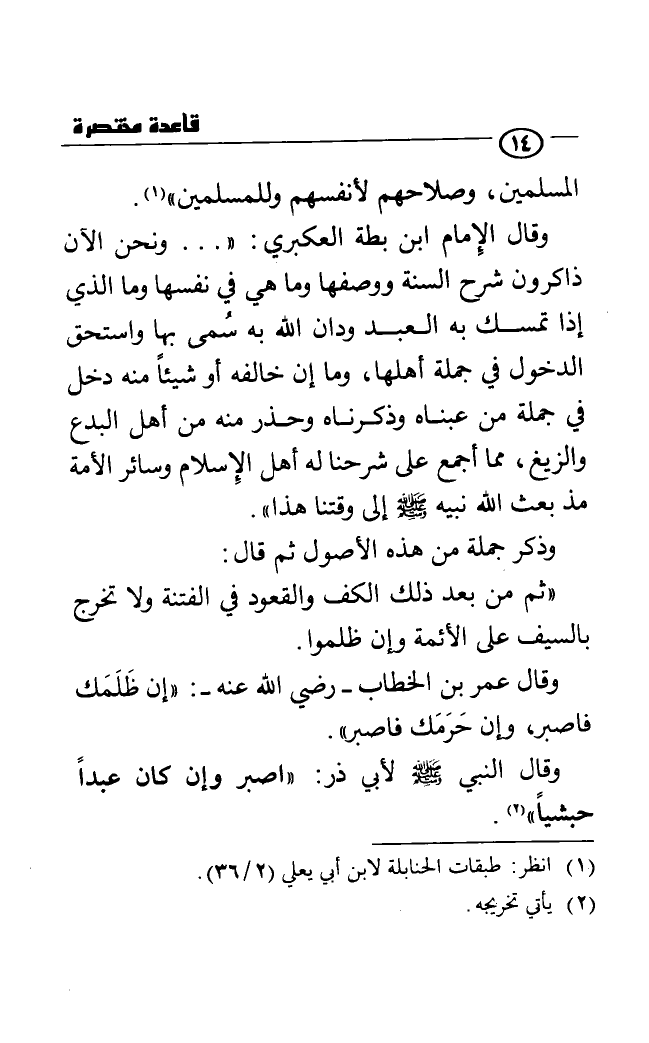 قاعدة مختصرة
١٤
المسلمين، وصلاحهم لأنفسهم وللمسلمين»(١).
وقال الإمام ابن بطة العكبري: «... ونحن الآن
ذاكرون شرح السنة ووصفها وما هي في نفسها وما الذي
إذا تمسك به العبد ودان الله به سُمى بها واستحق
الدخول في جملة أهلها، وما إن خالفه أو شيئاً منه دخل
في جملة من عبناه وذكرناه وحذر منه من أهل البدع
والزيغ، مما أجمع على شرحنا له أهل الإسلام وسائر الأمة
مذ بعث الله نبيه ﷺ إلى وقتنا هذا».
وذكر جملة من هذه الأصول ثم قال:
«ثم من بعد ذلك الكف والقعود في الفتنة ولا تخرج
بالسيف على الأئمة وإن ظلموا.
وقال عمر بن الخطاب ـ رضي الله عنه ـ: «إن ظَلَمَك
فاصبر، وإن حَرَمَك فاصبر».
وقال النبي ﷺ لأبي ذر: «اصبر وإن كان عبداً
حبشياً»(٢).
(١) انظر: طبقات الحنابلة لابن أبي يعلي (٣٦/٢).
(٢) يأتي تخريجه.